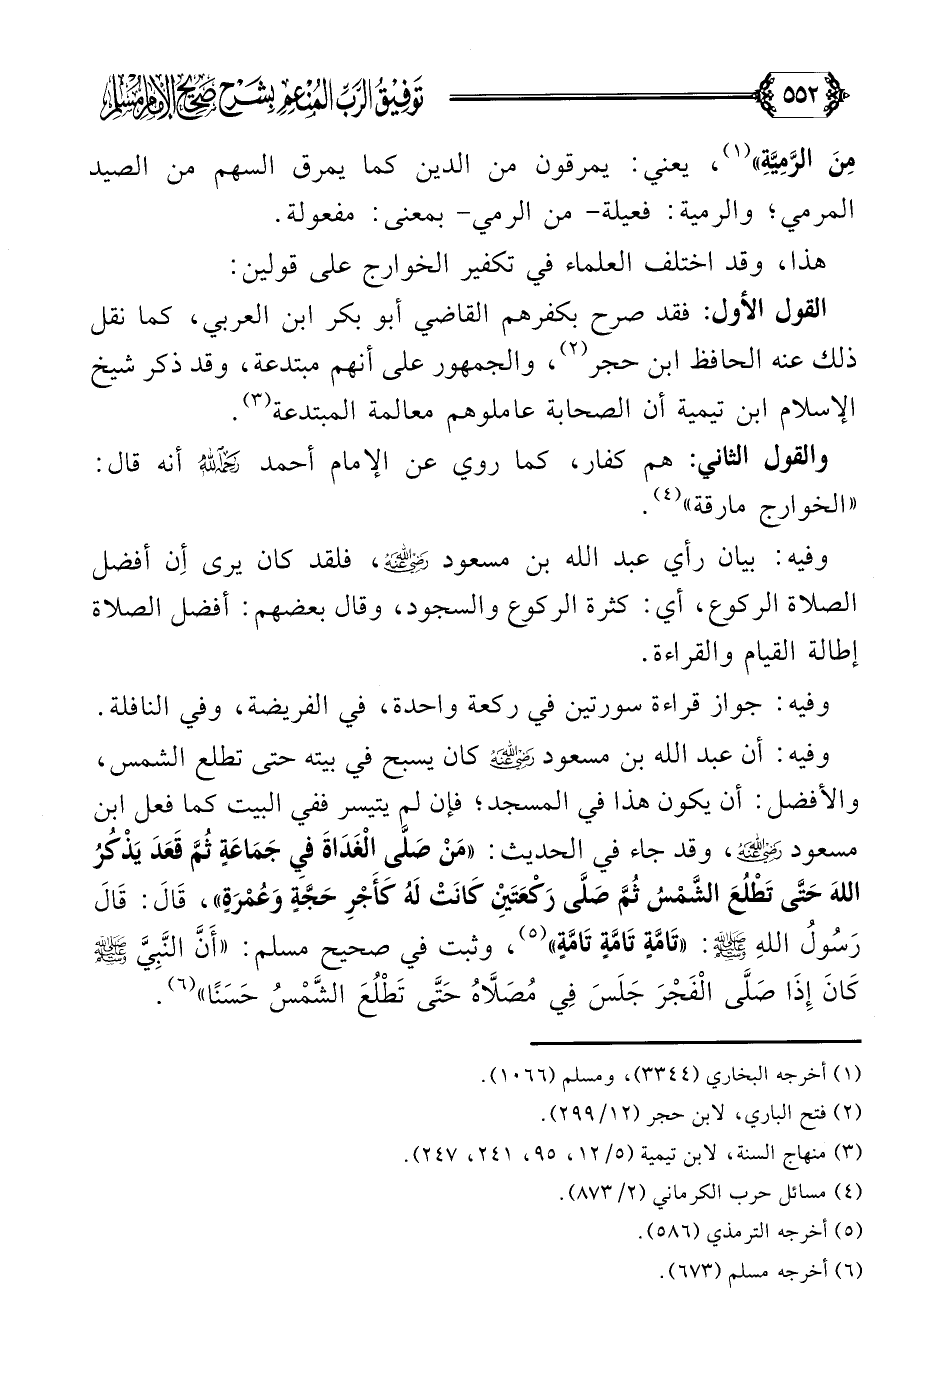 ٥٥٢ توفيق الرب المنعم بشرح صحيح الإمام مسلم
مِنَ الرَّمِيَّةِ»(١)، يعني: يمرقون من الدين كما يمرق السهم من الصيد
المرمي؛ والرمية: فعيلة- من الرمي- بمعنى: مفعولة.
هذا، وقد اختلف العلماء في تكفير الخوارج على قولين:
القول الأول: فقد صرح بكفرهم القاضي أبو بكر ابن العربي، كما نقل
ذلك عنه الحافظ ابن حجر(٢)، والجمهور على أنهم مبتدعة، وقد ذكر شيخ
الإسلام ابن تيمية أن الصحابة عاملوهم معالمة المبتدعة(٣).
والقول الثاني: هم كفار، كما روي عن الإمام أحمد رَحِمَهُ اللَّهُ أنه قال:
«الخوارج مارقة»(٤).
وفيه: بيان رأي عبد الله بن مسعود رَضِيَ اللَّهُ عَنْهُ، فلقد كان يرى أِن أفضل
الصلاة الركوع، أي: كثرة الركوع والسجود، وقال بعضهم: أفضل الصلاة
إطالة القيام والقراءة.
وفيه: جواز قراءة سورتين في ركعة واحدة، في الفريضة، وفي النافلة.
وفيه: أن عبد الله بن مسعود رَضِيَ اللَّهُ عَنْهُ كان يسبح في بيته حتى تطلع الشمس،
والأفضل: أن يكون هذا في المسجد؛ فإن لم يتيسر ففي البيت كما فعل ابن
مسعود رَضِيَ اللَّهُ عَنْهُ، وقد جاء في الحديث: «مَنْ صَلَّى الْغَدَاةَ فِي جَمَاعَةٍ ثُمَّ قَعَدَ يَذْكُرُ
اللهَ حَتَّى تَطْلُعَ الشَّمْسُ ثُمَّ صَلَّى رَكْعَتَيْنِ كَانَتْ لَهُ كَأَجْرِ حَجَّةٍ وَعُمْرَةٍ»، قَالَ: قَالَ
رَسُولُ اللهِ ﷺ: «تَامَّةٍ تَامَّةٍ تَامَّةٍ»(٥)، وثبت في صحيح مسلم: «أَنَّ النَّبِيَّ ﷺ
كَانَ إِذَا صَلَّى الْفَجْرَ جَلَسَ فِي مُصَلَّاهُ حَتَّى تَطْلُعَ الشَّمْسُ حَسَنًا»(٦).
(١) أخرجه البخاري (٣٣٤٤)، ومسلم (١٠٦٦).
(٢) فتح الباري، لابن حجر (٢٩٩/١٢).
(٣) منهاج السنة، لابن تيمية (١٢/٥، ٩٥، ٢٤١، ٢٤٧).
(٤) مسائل حرب الكرماني (٨٧٣/٢).
(٥) أخرجه الترمذي (٥٨٦).
(٦) أخرجه مسلم (٦٧٣).